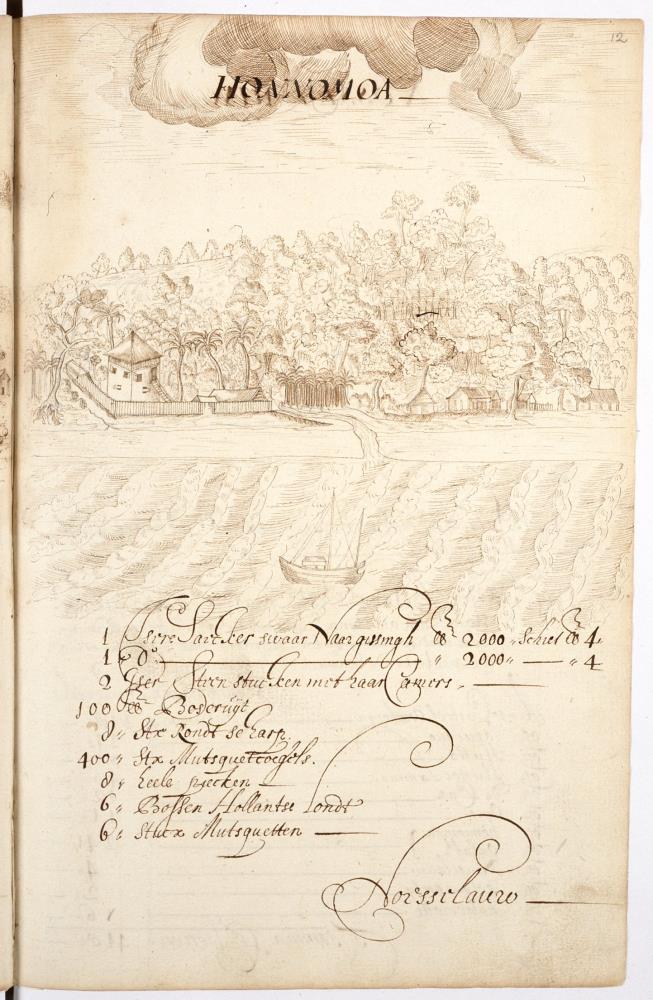 12
HONNOMOA
1 Isere Saecker swaar Naar gissingh lb 2000 „ Schiet lb 4„
1 „ Do „ 2000„ „ 4
2 Yser Steen stucken met haar Camers„
100 lb Boscruÿt
8„ Stx Rondt scharp.
400„ Stx Musquetcoegels.
8„ heele piecken
6„ Bossen Hollantse Londt
6„ Stucx Mutsquetten